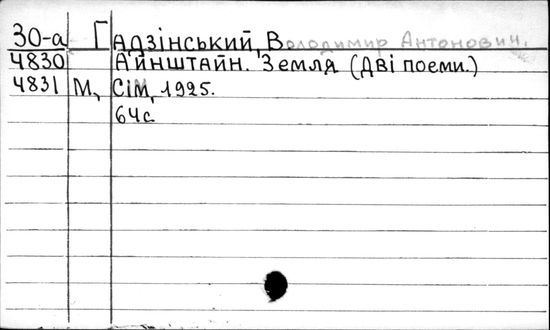 30-а Гадзінський, Володимир Антонович.
4830 Айнштайн. Земля (Дві поеми.)
4831 М, СіМ, 1925.
64с.